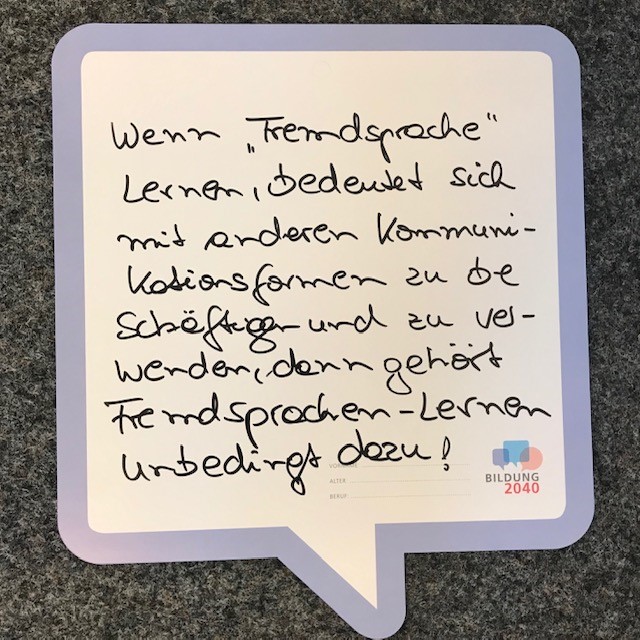 Wenn „Fremdsprache"
Lernen, bedeutet sich
mit anderen Kommuni-
kationsformen zu be
schäftigen und zu ver-
wenden, dann gehört
Fremdsprachen-Lernen
unbedingt dazu!
VORNAME
ALTER
BERUF
BILDUNG
2040